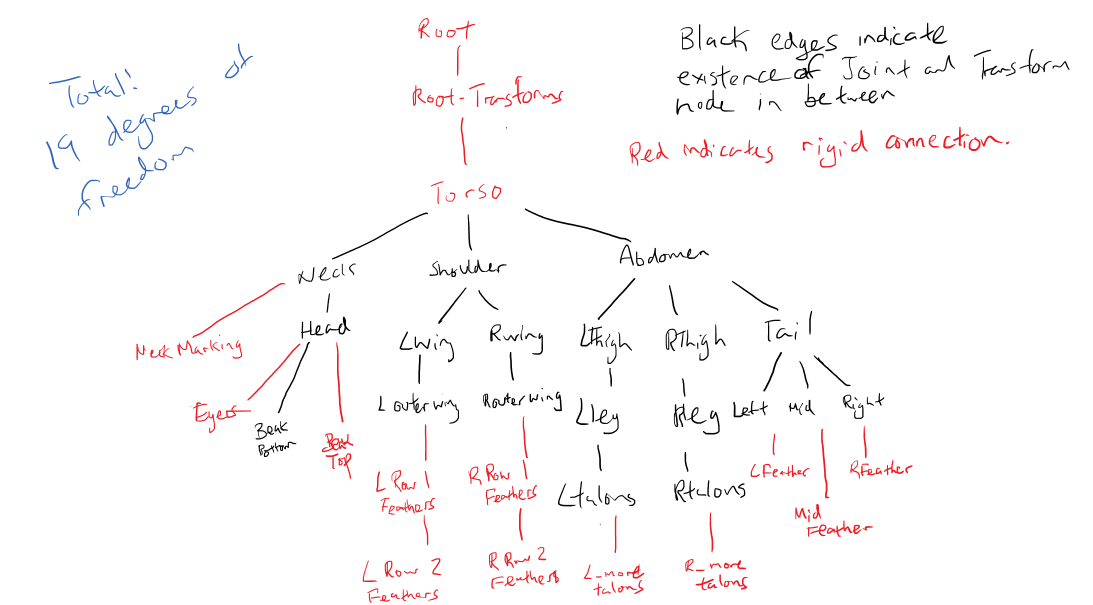 Root
Root-Transforms
Torso
Total!
19 degrees of
freedom
Black edges indicate
existence of Joint and Transform
node in between
Red indicates rigid connection.
Neck
Shoulder
Abdomen
Neck Marking
Head
Lwing
Rwing
LThigh
RThigh
Tail
Eyes
Beak
Bottom
Beak
Top
Louterwing
Routerwing
Lleg
Rleg
Left
Mid
Right
L Row 1
Feathers
R Row 1
Feathers
Ltalons
Rtalons
LFeather
Mid
Feather
RFeather
L Row 2
Feathers
R Row 2
Feathers
L_more
talons
R_more
talons